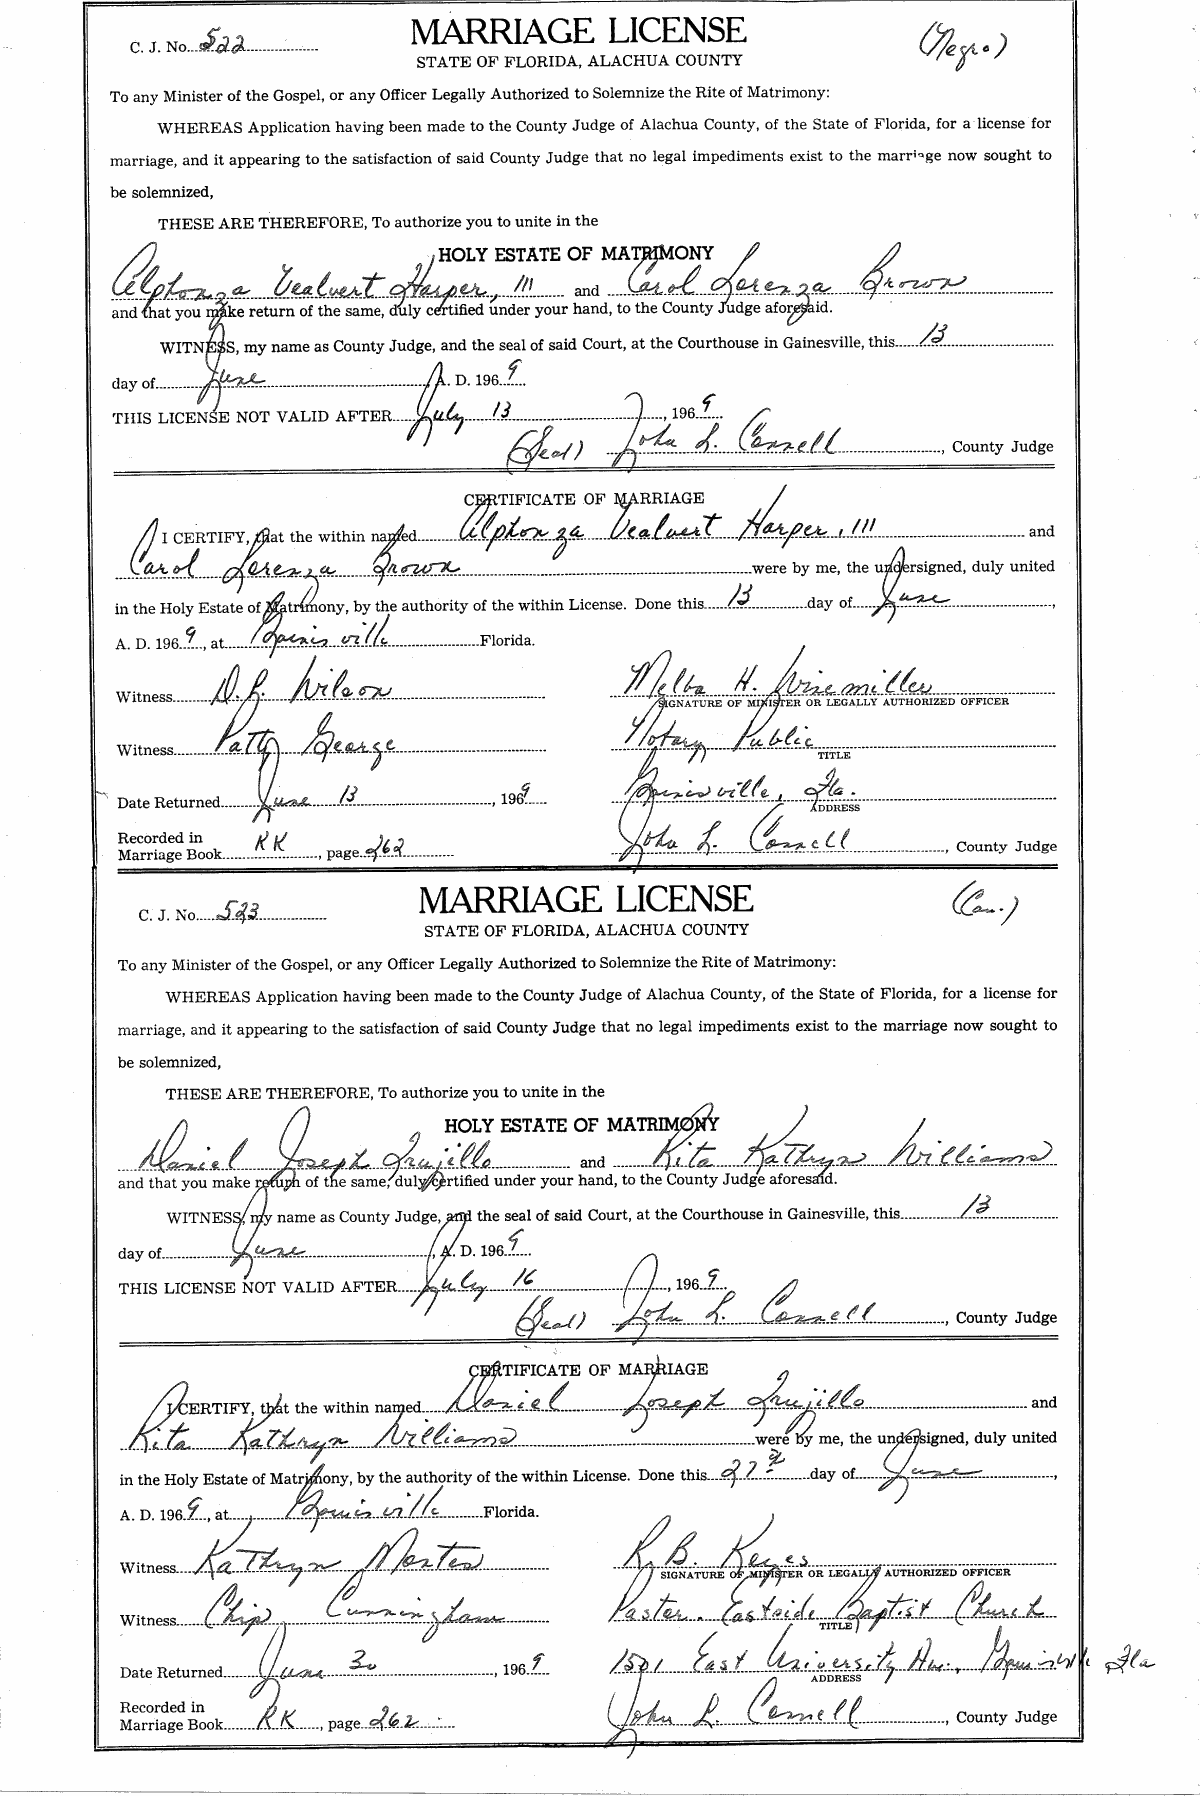 C. J. No. 522
MARRIAGE LICENSE
(Negro)
STATE OF FLORIDA, ALACHUA COUNTY
To any Minister of the Gospel, or any Officer Legally Authorized to Solemnize the Rite of Matrimony:
WHEREAS Application having been made to the County Judge of Alachua County, of the State of Florida, for a license for
marriage, and it appearing to the satisfaction of said County Judge that no legal impediments exist to the marriage now sought to
be solemnized,
THESE ARE THEREFORE, To authorize you to unite in the
HOLY ESTATE OF MATRIMONY
Alphonza Vealvert Harper, III and Carol Lorenza Brown
and that you make return of the same, duly certified under your hand, to the County Judge aforesaid.
WITNESS, my name as County Judge, and the seal of said Court, at the Courthouse in Gainesville, this 13
day of June, A. D. 1969
THIS LICENSE NOT VALID AFTER July 13, 1969
(Seal) John L. Connell, County Judge
CERTIFICATE OF MARRIAGE
I CERTIFY, that the within named Alphonza Vealvert Harper, III and
Carol Lorenza Brown were by me, the undersigned, duly united
in the Holy Estate of Matrimony, by the authority of the within License. Done this 13 day of June,
A. D. 1969, at Gainesville Florida.
Witness D. L. Wilson Melba H. Winemiller
SIGNATURE OF MINISTER OR LEGALLY AUTHORIZED OFFICER
Witness Patty George Notary Public
TITLE
Date Returned June 13, 1969 Gainesville, Fla.
ADDRESS
Recorded in
Marriage Book RK, page 262 John L. Connell, County Judge
C. J. No. 523
MARRIAGE LICENSE
(Cau.)
STATE OF FLORIDA, ALACHUA COUNTY
To any Minister of the Gospel, or any Officer Legally Authorized to Solemnize the Rite of Matrimony:
WHEREAS Application having been made to the County Judge of Alachua County, of the State of Florida, for a license for
marriage, and it appearing to the satisfaction of said County Judge that no legal impediments exist to the marriage now sought to
be solemnized,
THESE ARE THEREFORE, To authorize you to unite in the
HOLY ESTATE OF MATRIMONY
Daniel Joseph Trujillo and Rita Kathryn Williams
and that you make return of the same, duly certified under your hand, to the County Judge aforesaid.
WITNESS, my name as County Judge, and the seal of said Court, at the Courthouse in Gainesville, this 13
day of June, A. D. 1969
THIS LICENSE NOT VALID AFTER July 16, 1969
(Seal) John L. Connell, County Judge
CERTIFICATE OF MARRIAGE
I CERTIFY, that the within named Daniel Joseph Trujillo and
Rita Kathryn Williams were by me, the undersigned, duly united
in the Holy Estate of Matrimony, by the authority of the within License. Done this 27th day of June,
A. D. 1969, at Gainesville Florida.
Witness Kathryn R. B. Keyes
SIGNATURE OF MINISTER OR LEGALLY AUTHORIZED OFFICER
Witness Chip Cunningham Pastor. Eastside Baptist Church
TITLE
Date Returned June 30, 1969 1501 East University Av., Gainesville Fla
ADDRESS
Recorded in
Marriage Book RK, page 262 John L. Connell, County Judge